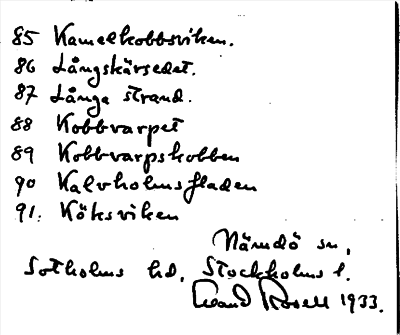 85 Kamelkobbsviken.
86 Långskärsedet.
87 Långa strand.
88 Kobbvarpet
89 Kobbvarpskobben
90 Kalvholmsfladen
91. Köksviken
Nämdö sn,
Sotholms hd, Stockholms l.
Erland Rosell 1933.